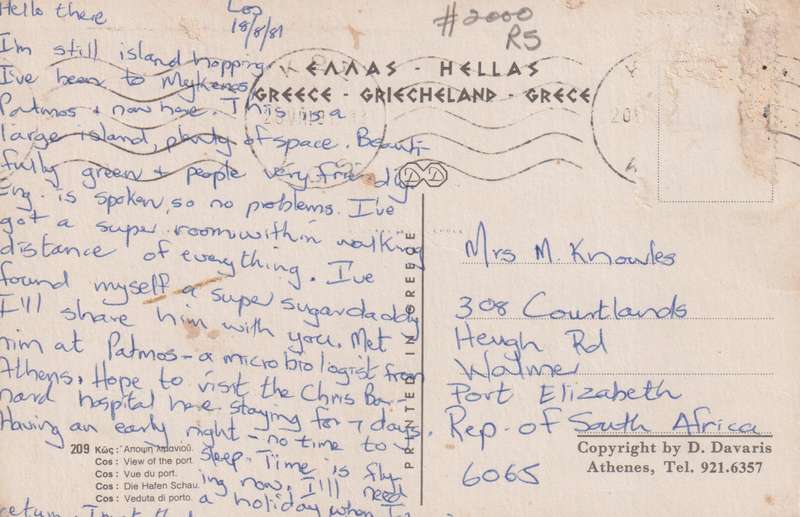 Hello there
Cos
18/8/81
I'm still island hopping.
I've been to Mykonos,
Patmos + now here. This is a
large island, plenty of space. Beauti-
fully green + people very friendly
Eng. is spoken, so no problems. I've
got a super room within walking
distance of everything. I've
found myself a super sugardaddy
I'll share him with you. Met
him at Patmos - a microbiologist from
Athens. Hope to visit the Chris Bar-
nard hospital here. staying for 7 days.
Having an early night - no time to
sleep. Time is fly-
ing now. I'll need
a holiday when I
return.
#2000
R5
ΕΛΛΑΣ - HELLAS
GREECE - GRIECHELAND - GRECE
PRINTED IN GREECE
Mrs M. Knowles
308 Courtlands
Heugh Rd
Walmer
Port Elizabeth
Rep. of South Africa
6065
209 Κῶς: Ἄποψη λιμανιοῦ.
Cos: View of the port.
Cos: Vue du port.
Cos: Die Hafen Schau.
Cos: Veduta di porto.
Copyright by D. Davaris
Athenes, Tel. 921.6357